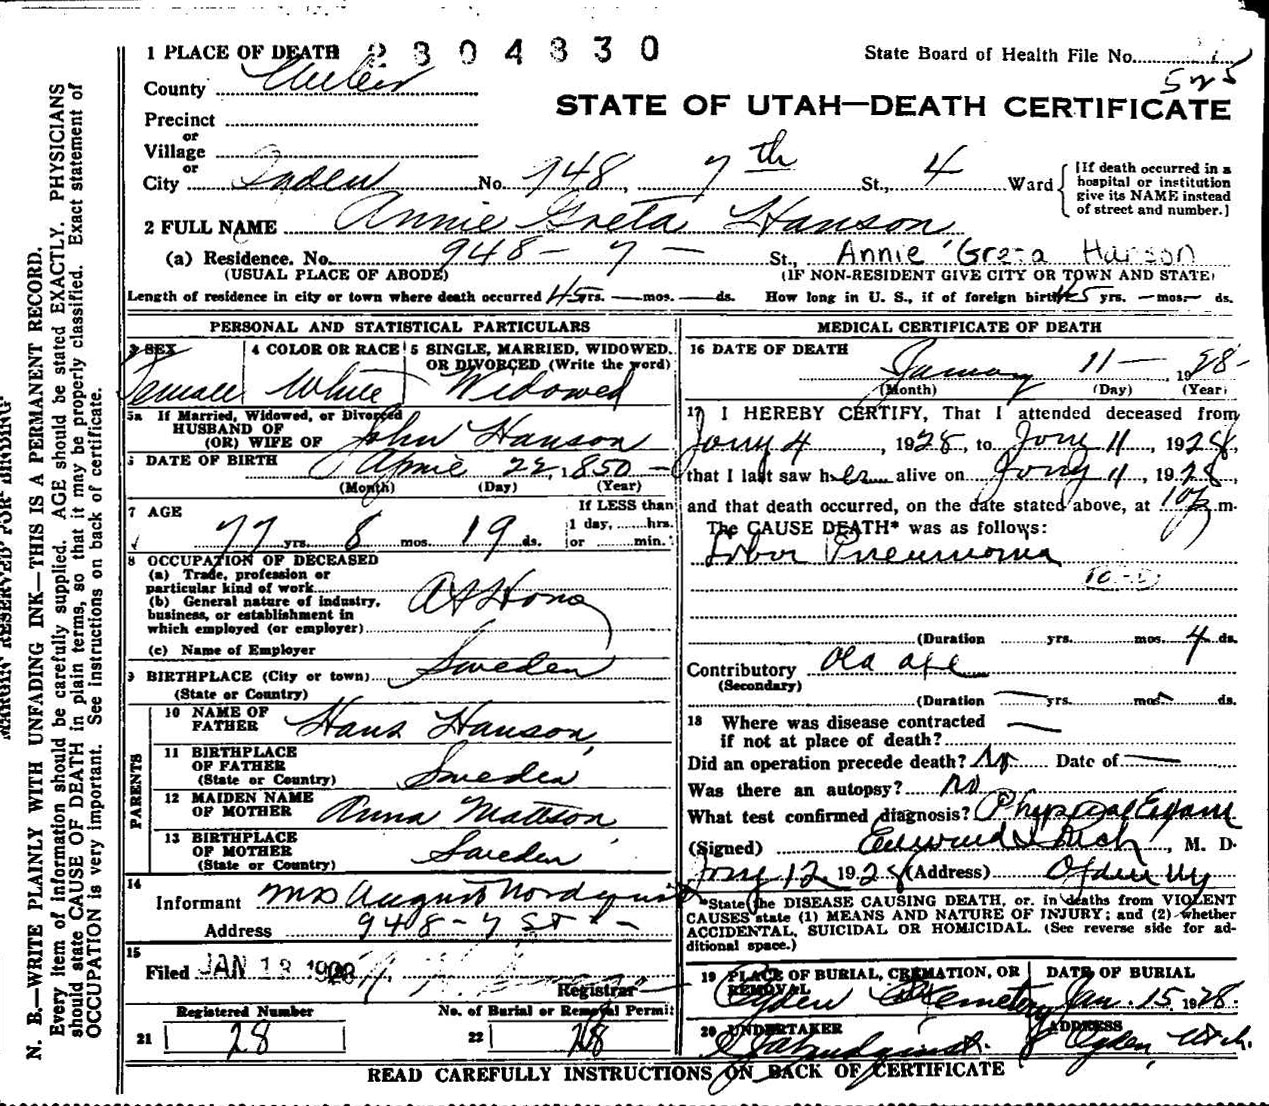 1 PLACE OF DEATH 2304330 State Board of Health File No.
525
County Weber
STATE OF UTAH—DEATH CERTIFICATE
Precinct
or
Village
or
City Ogden No. 948 7th St., 4 Ward
[If death occurred in a hospital or institution give its NAME instead of street and number.]
2 FULL NAME Annie Greta Hanson
(a) Residence. No. 948 - 7 - St., Annie Greta Hanson
(USUAL PLACE OF ABODE) (IF NON-RESIDENT GIVE CITY OR TOWN AND STATE)
Length of residence in city or town where death occurred 45 yrs. — mos. — ds. How long in U. S., if of foreign birth 45 yrs. — mos. — ds.
PERSONAL AND STATISTICAL PARTICULARS
3 SEX 4 COLOR OR RACE 5 SINGLE, MARRIED, WIDOWED, OR DIVORCED (Write the word)
Female White Widowed
5a If Married, Widowed, or Divorced
HUSBAND OF
(OR) WIFE OF John Hanson
6 DATE OF BIRTH 22, 1850
(Month) (Day) (Year)
7 AGE If LESS than
77 yrs. 8 mos. 19 ds. 1 day, ......hrs.
or ......min.
8 OCCUPATION OF DECEASED
(a) Trade, profession or
particular kind of work At Home
(b) General nature of industry,
business, or establishment in
which employed (or employer)
(c) Name of Employer
9 BIRTHPLACE (City or town) Sweden
(State or Country)
PARENTS
10 NAME OF
FATHER Hans Hanson
11 BIRTHPLACE
OF FATHER Sweden
(State or Country)
12 MAIDEN NAME
OF MOTHER Anna Mattson
13 BIRTHPLACE
OF MOTHER Sweden
(State or Country)
14
Informant Mrs August Nordquist
Address 948 - 7 St
15
Filed JAN 1928
Registrar
Registered Number No. of Burial or Removal Permit
21 28 22 28
MEDICAL CERTIFICATE OF DEATH
16 DATE OF DEATH
January 11 — 1928
(Month) (Day) (Year)
17 I HEREBY CERTIFY, That I attended deceased from
Jany 4, 1928, to Jany 11, 1928,
that I last saw her alive on Jany 11, 1928,
and that death occurred, on the date stated above, at 10 p m.
The CAUSE DEATH* was as follows:
Lobar Pneumonia
(Duration ......yrs. ......mos. 4 ds.
Contributory Old age
(Secondary)
(Duration ......yrs. ......mos. ......ds.
18 Where was disease contracted
if not at place of death? —
Did an operation precede death? No Date of —
Was there an autopsy? No
What test confirmed diagnosis? Physical Exam
(Signed) M. D.
Jany 12 1928 (Address) Ogden
*State the DISEASE CAUSING DEATH, or, in deaths from VIOLENT
CAUSES state (1) MEANS AND NATURE OF INJURY; and (2) whether
ACCIDENTAL, SUICIDAL OR HOMICIDAL. (See reverse side for ad-
ditional space.)
19 PLACE OF BURIAL, CREMATION, OR REMOVAL DATE OF BURIAL
Ogden Cemetery Jan. 15 1928.
20 UNDERTAKER ADDRESS
Ogden, Utah.
READ CAREFULLY INSTRUCTIONS ON BACK OF CERTIFICATE
MARGIN RESERVED FOR BINDING
N. B.—WRITE PLAINLY WITH UNFADING INK—THIS IS A PERMANENT RECORD.
Every item of information should be carefully supplied. AGE should be stated EXACTLY. PHYSICIANS
should state CAUSE OF DEATH in plain terms, so that it may be properly classified. Exact statement of
OCCUPATION is very important. See instructions on back of certificate.